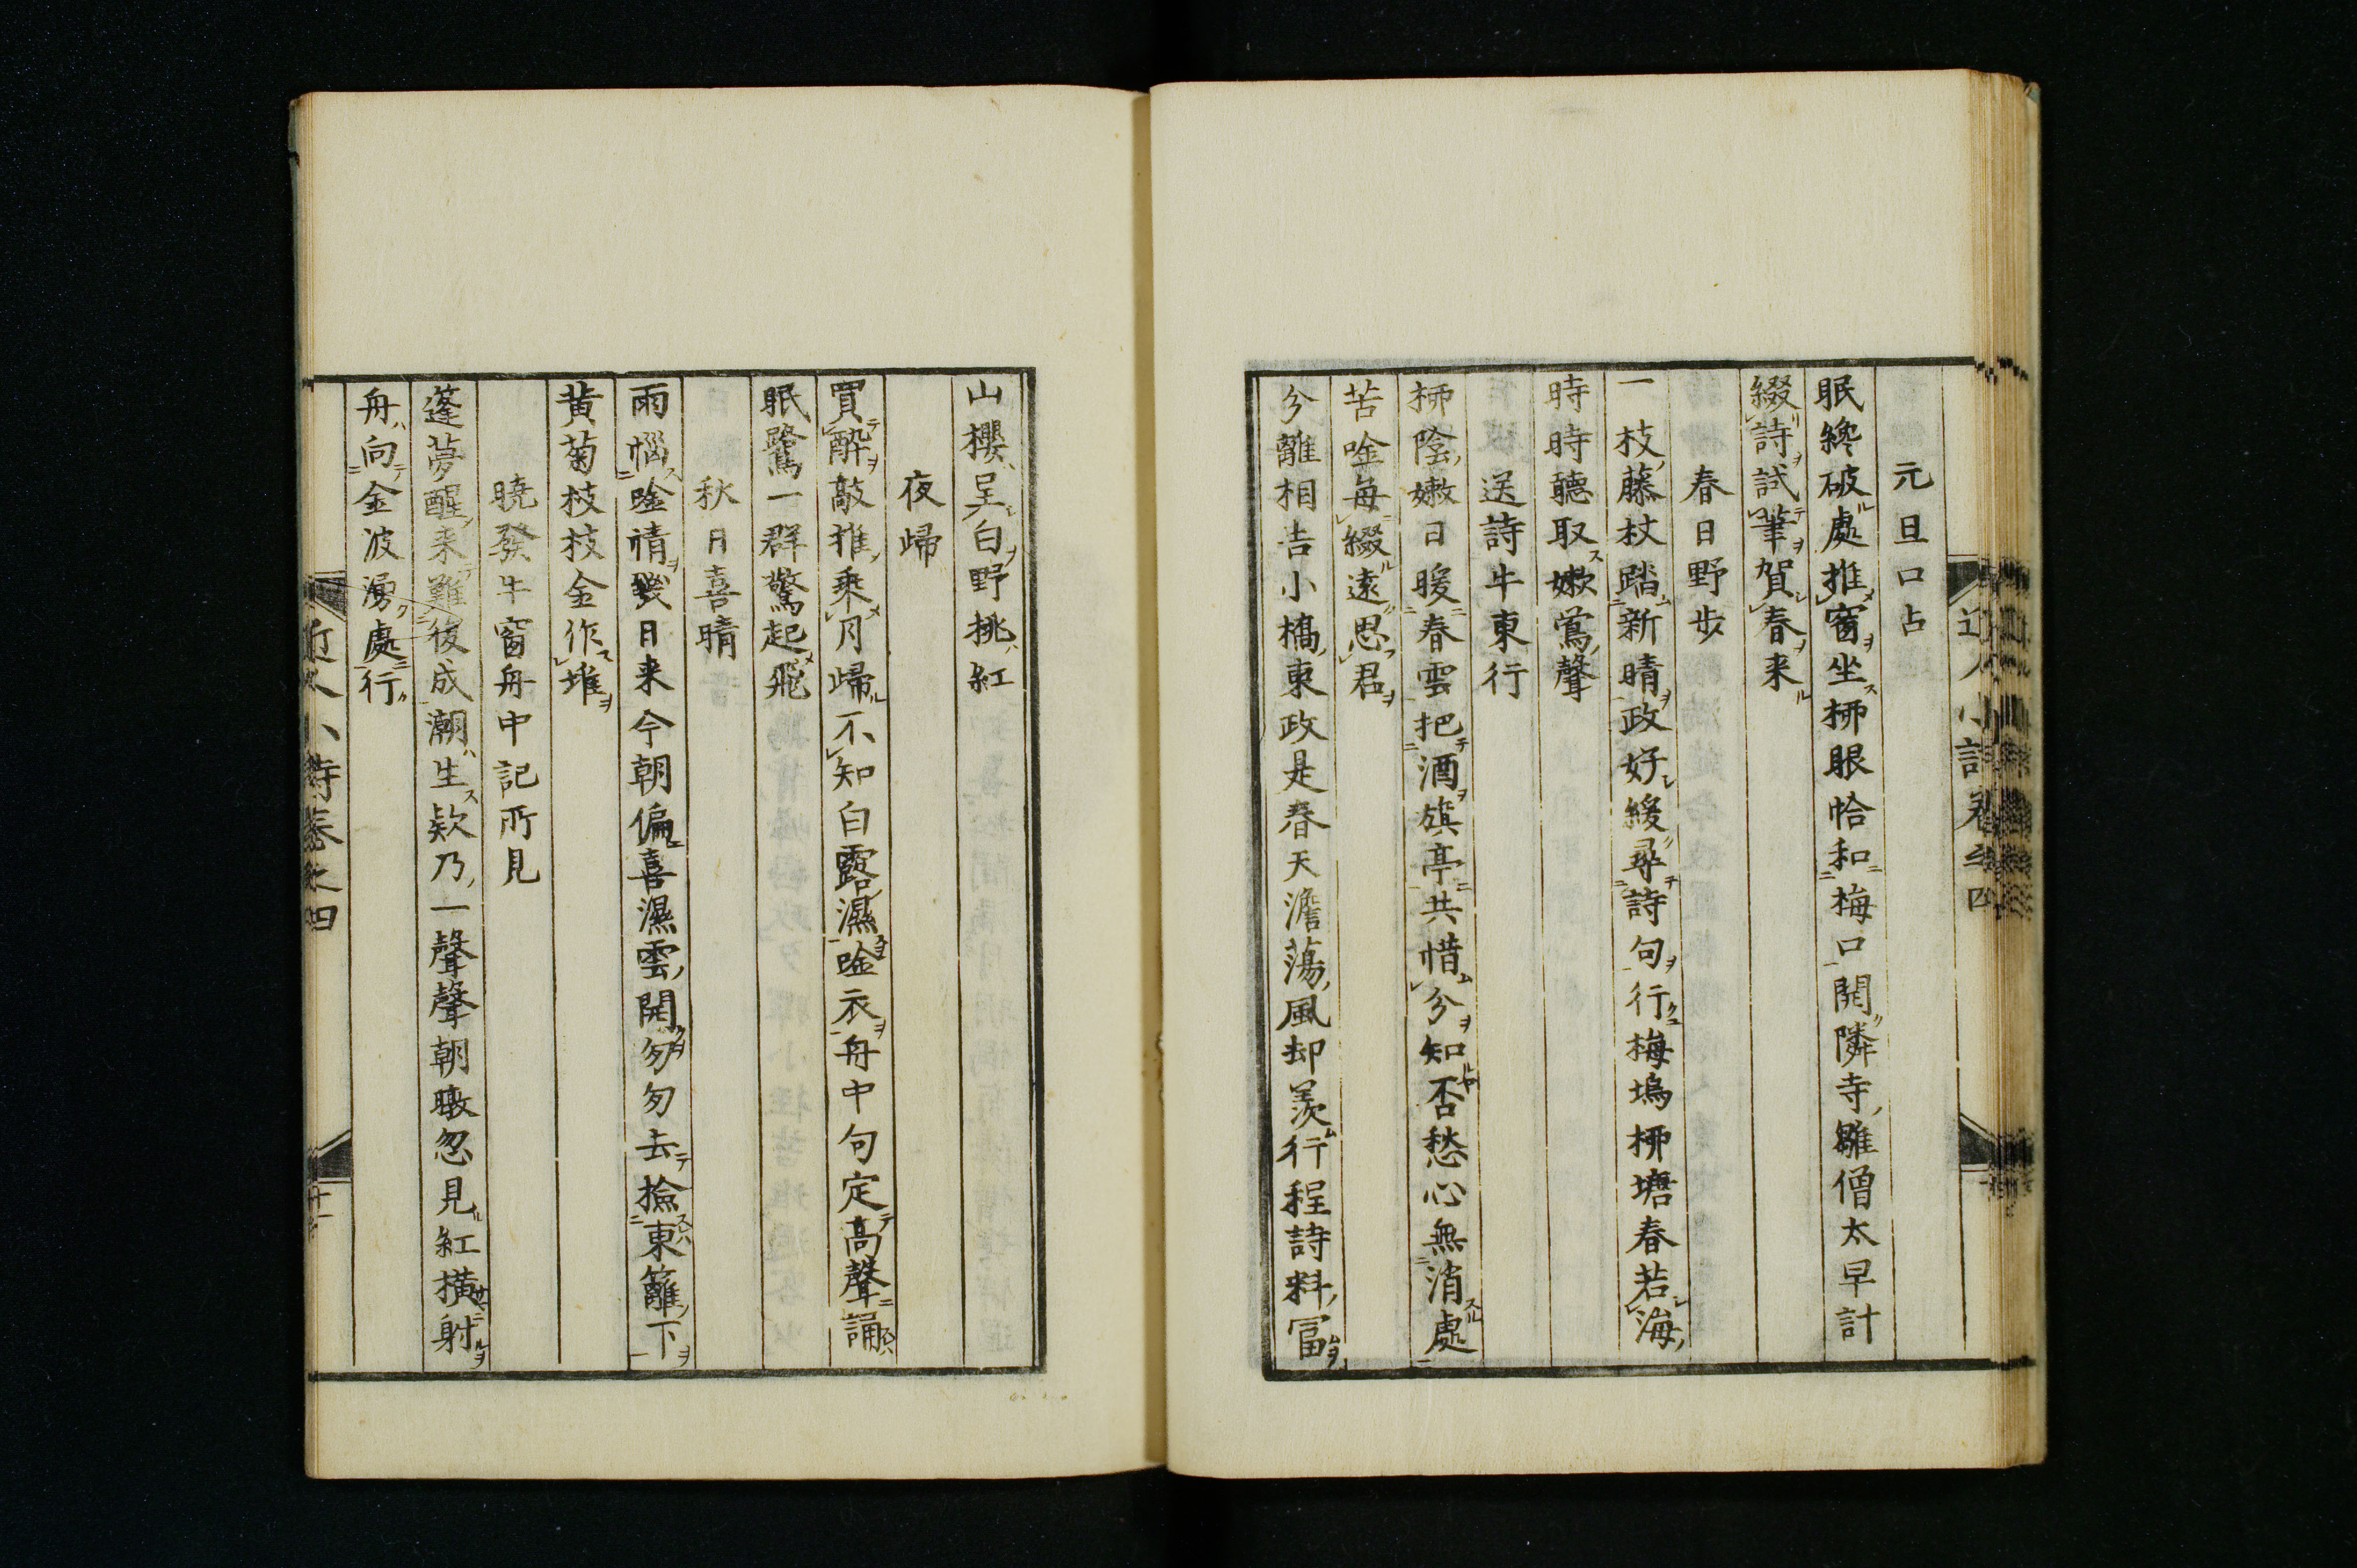 元旦口占
眠纔破處推窗坐栁眼恰和梅口開隣寺雛僧太早計
綴詩試筆賀春来
春日野步
一枝藤杖踏新晴政好緩尋詩句行梅塢栁塘春若海
時時聽取嫩鶯聲
送詩牛東行
栁陰嫩日暖春雲把酒旗亭共惜分知否愁心無消處
苦唫每綴遠思君
分離相告小橋東政是春天澹蕩風却羨行程詩料富
山櫻呈白野桃紅
夜歸
買酔敲推乘月歸不知白露濕唫衣舟中句定高聲誦
眠鷺一群驚起飛
秋月喜晴
雨惱唫情幾日来今朝偏喜濕雲開匆匆去撿東籬下
黄菊枝枝金作堆
曉發牛窗舟中記所見
蓬夢醒来難後成潮生欵乃一聲聲朝暾忽見紅橫射
舟向金波湧處行
近人小詩卷之四